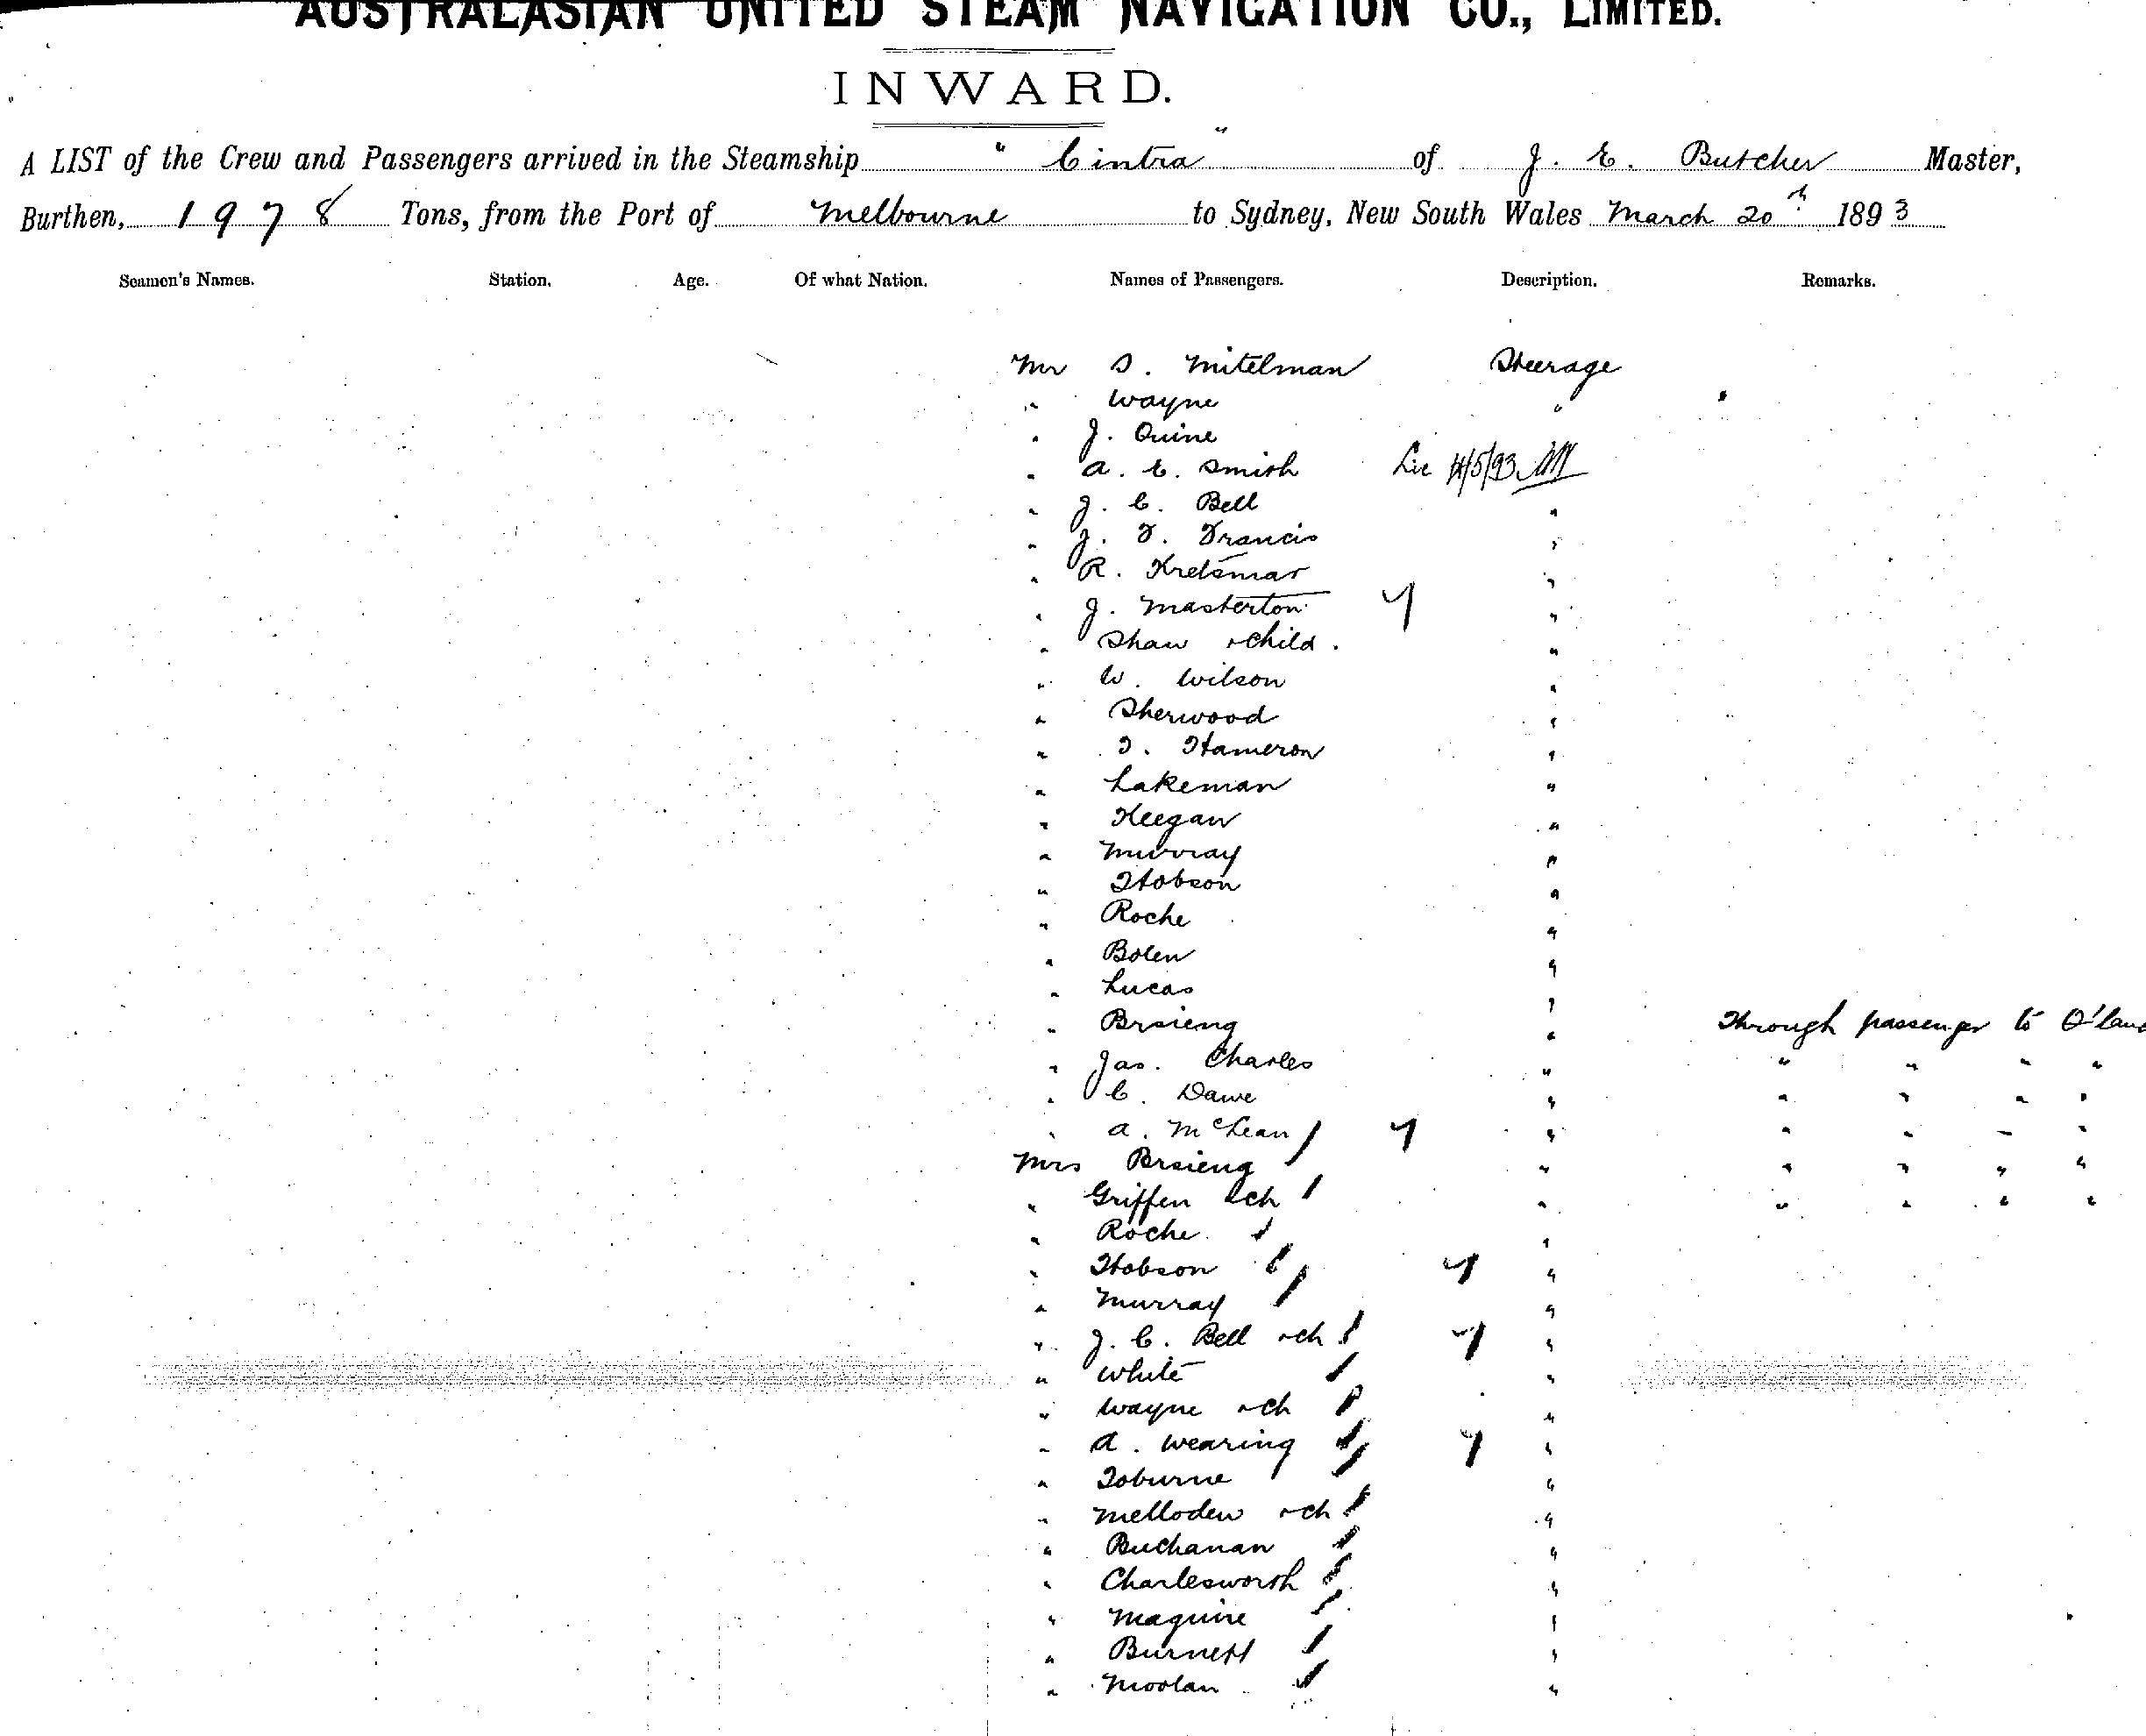 AUSTRALASIAN UNITED STEAM NAVIGATION CO., LIMITED.
INWARD.
A LIST of the Crew and Passengers arrived in the Steamship " Cintra " of J. E. Butcher Master,
Burthen, 1978 Tons, from the Port of Melbourne to Sydney, New South Wales March 20th 1893
Seamen's Names. Station. Age. Of what Nation. Names of Passengers. Description. Remarks.
Mr S. Mitelman Steerage
" Wayne "
" J. Quine
" A. E. Smith
" J. C. Bell "
" J. F. Francis "
" R. Kretsmar "
" J. Masterton "
" Shaw & child. "
" W. Wilson "
" Sherwood "
" T. Hameron "
" Lakeman "
" Keegan "
" Murray "
" Hobson "
" Roche "
" Bolen "
" Lucas "
" Brsieng " Through passenger to Q'land
" Jas. Charles " " " " "
" C. Dawe " " " " "
" A. McLean " " " " "
Mrs Brsieng " " " " "
" Griffen & ch " " " " "
" Roche "
" Hobson "
" Murray "
" J. C. Bell & ch "
" White "
" Wayne & ch "
" A. Wearing "
" Toburne "
" Melloden & ch "
" Buchanan "
" Charlesworth "
" Maguire "
" Burnett "
" Moolan "